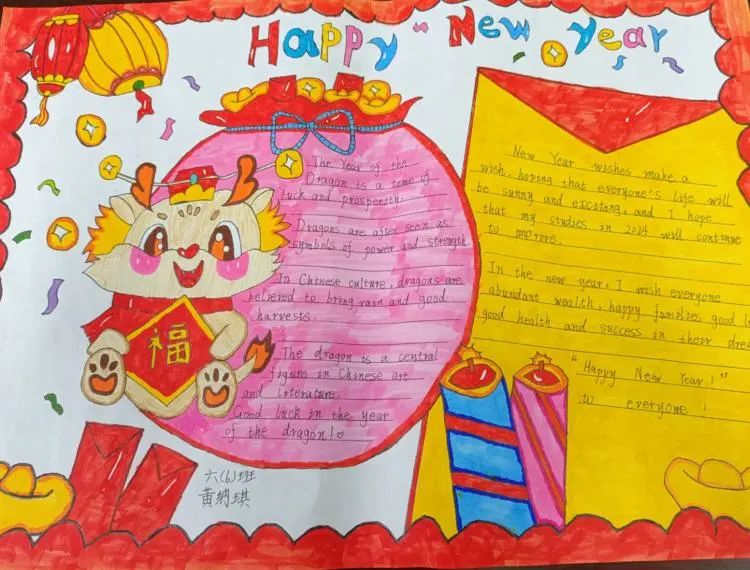 Happy New Year
The Year of the
Dragon is a time of
luck and prosperity.
Dragons are often seen as
symbols of power and strength.
In Chinese culture, dragons are
believed to bring rain and good
harvests.
The dragon is a central
figure in Chinese art
and literature.
Good luck in the year
of the dragon!
福
六(6)班
黄纳琪
New Year wishes make a
wish, hoping that everyone's life will
be sunny and exciting, and I hope
that my studies in 2024 will continue
to improve.
In the new year, I wish everyone
abundant wealth, happy families, good
good health and success in their
"Happy New Year!"
to everyone!